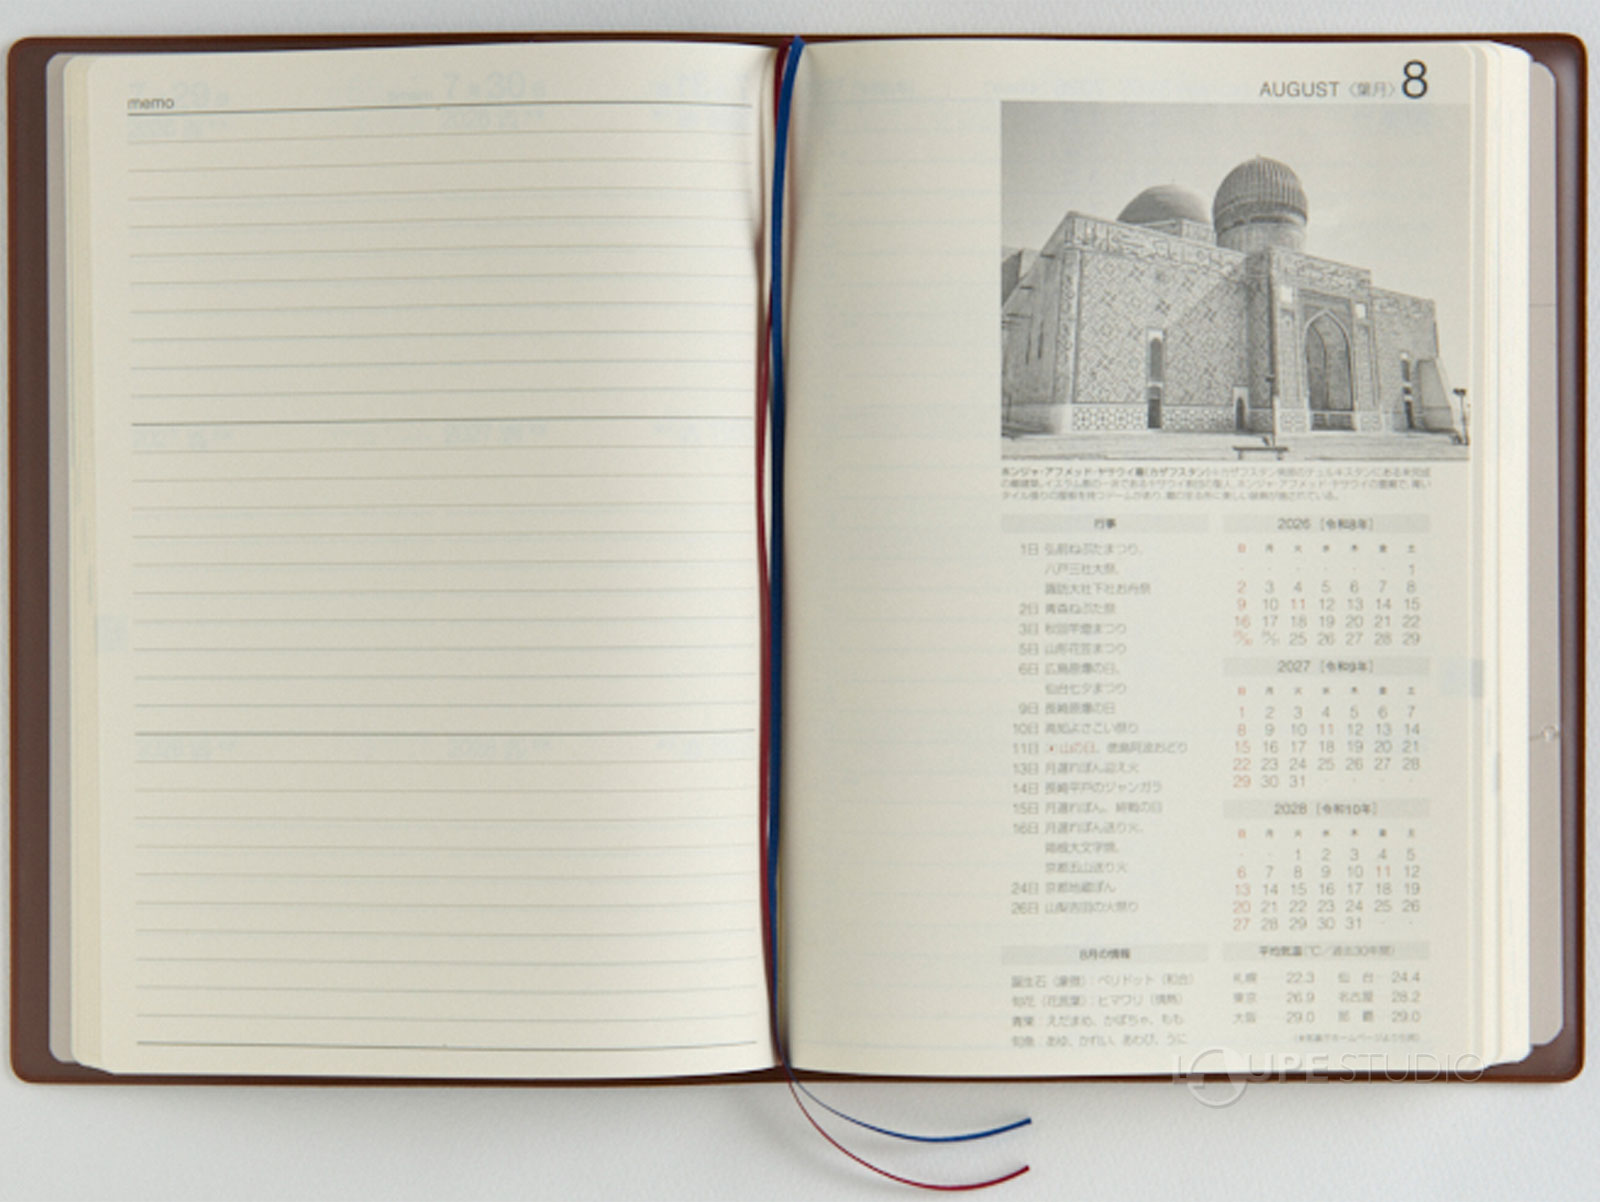 memo
7月30
AUGUST〈葉月〉8
ホンジャ・アフメッド・ヤサウイ廟(カザフスタン)
行事
1日 弘前ねぷたまつり、
八戸三社大祭、
諏訪大社下社お舟祭
2日 青森ねぶた祭
3日 秋田竿燈まつり
5日 山形花笠まつり
6日 広島原爆の日、
仙台七夕まつり
9日 長崎原爆の日
10日 高知よさこい祭り
11日 山の日、徳島阿波おどり
13日 月遅れぼん迎え火
14日 長崎平戸のジャンガラ
15日 月遅れぼん、終戦の日
16日 月遅れぼん送り火、
箱根大文字焼、
京都五山送り火
24日 京都地蔵ぼん
26日 山梨吉田の火祭り
2026 [令和8年]
日 月 火 水 木 金 土
1
2 3 4 5 6 7 8
9 10 11 12 13 14 15
16 17 18 19 20 21 22
23/30 24/31 25 26 27 28 29
2027 [令和9年]
日 月 火 水 木 金 土
1 2 3 4 5 6 7
8 9 10 11 12 13 14
15 16 17 18 19 20 21
22 23 24 25 26 27 28
29 30 31
2028 [令和10年]
日 月 火 水 木 金 土
1 2 3 4 5
6 7 8 9 10 11 12
13 14 15 16 17 18 19
20 21 22 23 24 25 26
27 28 29 30 31
8月の情報
誕生石(象徴):ペリドット(和合)
旬花(花言葉):ヒマワリ(情熱)
青果:えだまめ、かぼちゃ、もも
旬魚:あゆ、かれい、あわび、うに
平均気温(℃/過去30年間)
札幌 22.3 仙台 24.4
東京 26.9 名古屋 28.2
大阪 29.0 那覇 29.0
LOUPE STUDIO